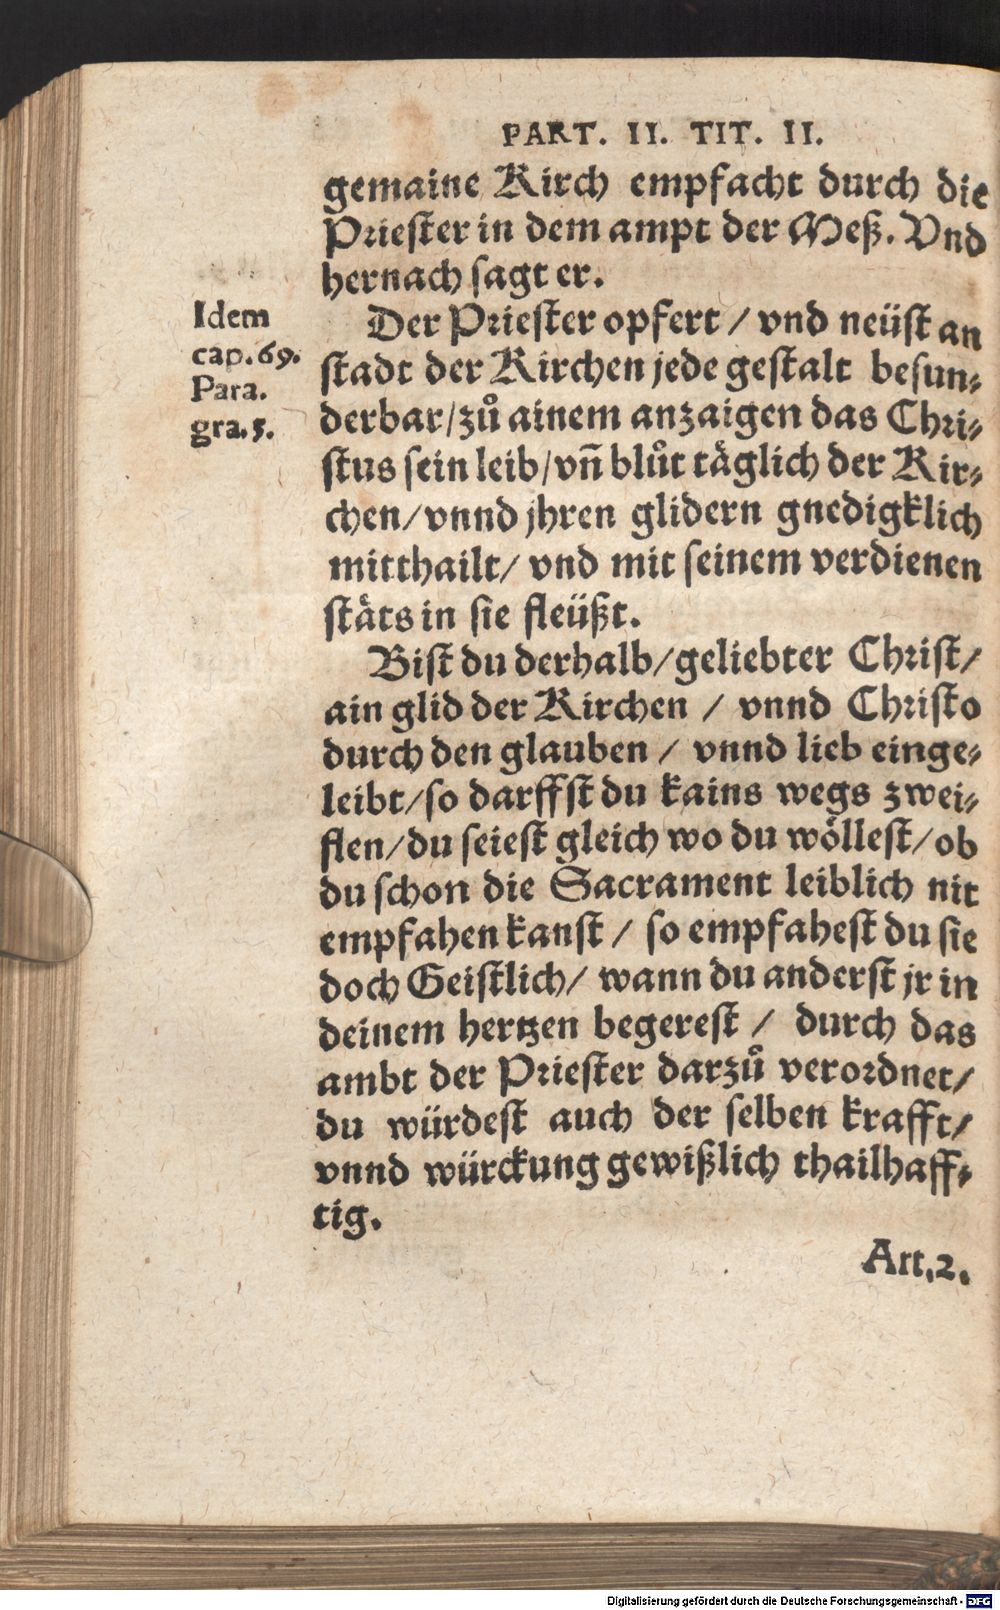 PART. II. TIT. II.
gemaine Kirch empfacht durch die
Priester in dem ampt der Meß. Vnd
hernach sagt er.
Idem
cap. 69.
Para.
gra. 5.
Der Priester opfert / vnd neüst an
stadt der Kirchen jede gestalt besun⸗
derbar/zů ainem anzaigen das Chri⸗
stus sein leib/vn̄ blůt täglich der Kir⸗
chen/vnnd jhren glidern gnedigklich
mitthailt/ vnd mit seinem verdienen
stäts in sie fleüßt.
Bist du derhalb/geliebter Christ/
ain glid der Kirchen / vnnd Christo
durch den glauben / vnnd lieb einge⸗
leibt/so darffst du kains wegs zwei⸗
flen/du seiest gleich wo du wöllest/ob
du schon die Sacrament leiblich nit
empfahen kanst / so empfahest du sie
doch Geistlich/ wann du anderst jr in
deinem hertzen begerest / durch das
ambt der Priester darzů verordnet/
du würdest auch der selben krafft/
vnnd würckung gewißlich thailhaff⸗
tig.
Art. 2.
Digitalisierung gefördert durch die Deutsche Forschungsgemeinschaft - DFG